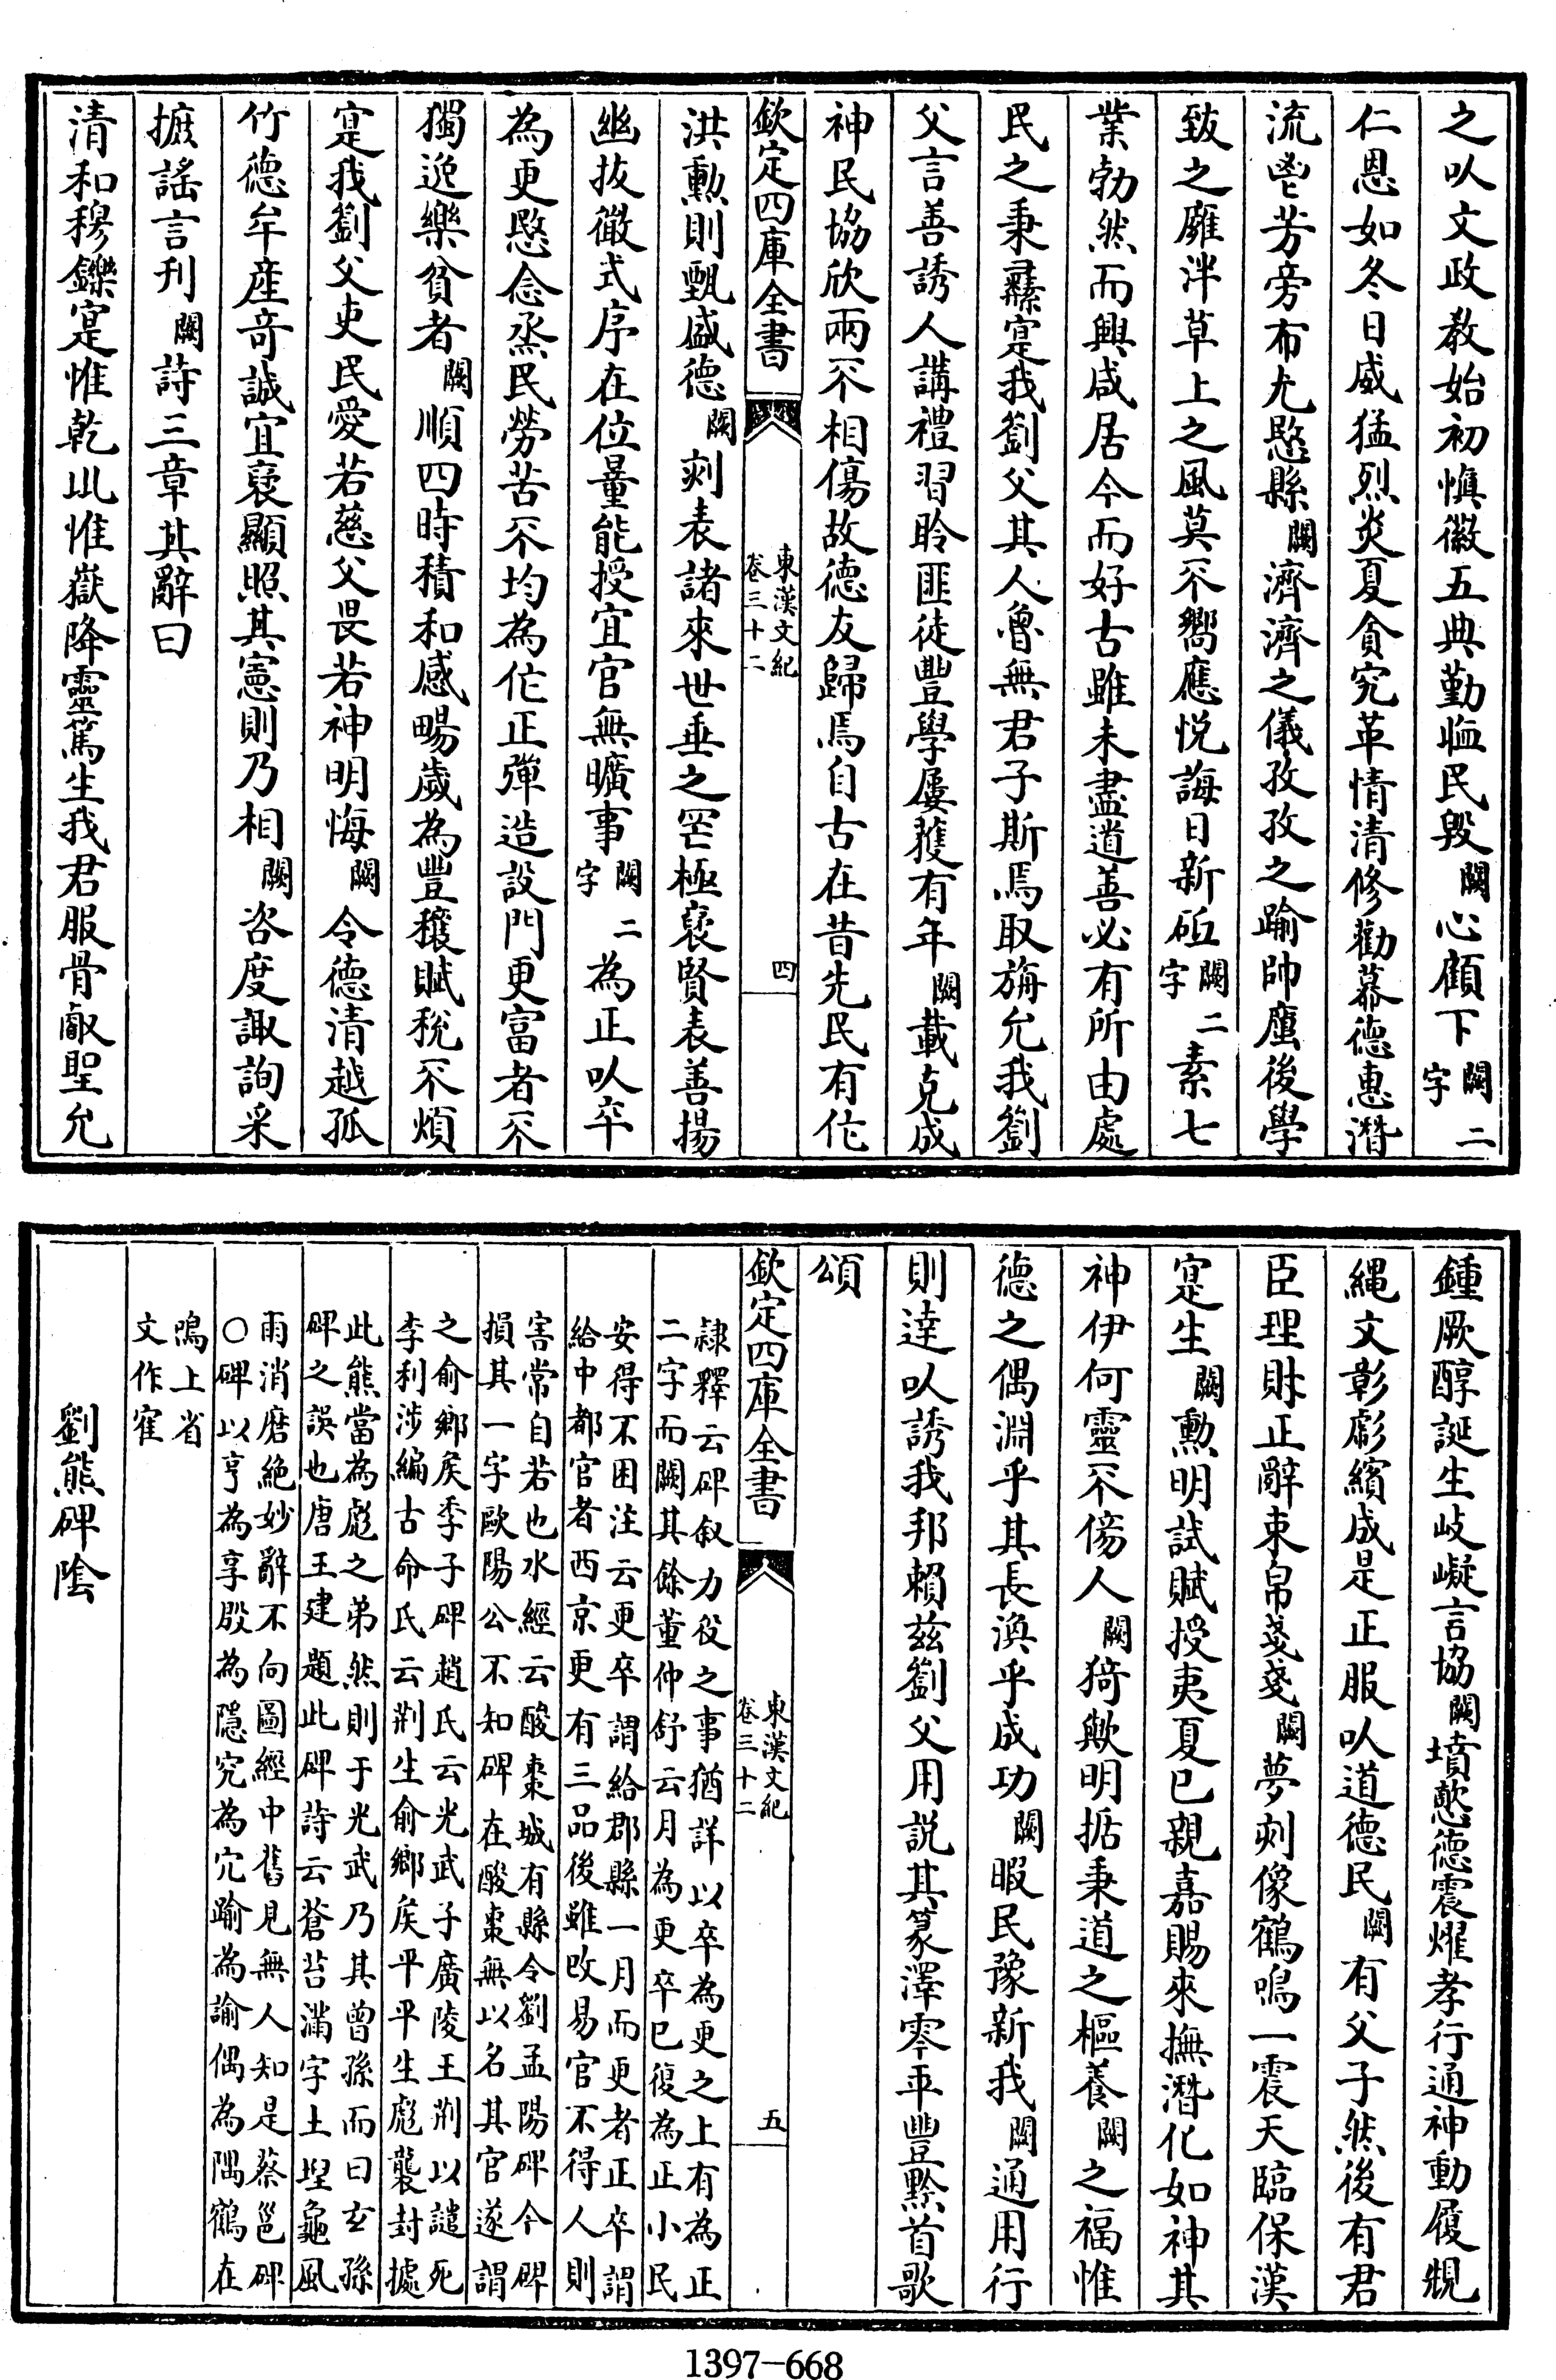 之以文政教始初慎徽五典勤恤民毁闕心顧下闕二字
仁恩如冬日威猛烈炎夏貪究革情清修勸慕德惠潛
流鬯芳旁布尤愍縣闕濟濟之儀孜孜之踰帥厲後學
致之廱泮草上之風莫不嚮應悅誨日新砥闕二字素七
業勃然而興咸居今而好古雖未盡道善必有所由處
民之秉彝寔我劉父其人魯無君子斯焉取旃允我劉
父言善誘人講禮習聆匪徒豐學屢獲有年闕載克成
神民協欣兩不相傷故德友歸焉自古在昔先民有作
欽定四庫全書
東漢文紀
卷三十二
四
洪勳則甄盛德闕刻表諸來世垂之罔極襃賢表善揚
幽拔微式序在位量能授宜官無曠事闕二字為正以卒
為更愍念烝民勞苦不均為作正彈造設門更富者不
獨逸樂貧者闕順四時積和感暢歲為豐穰賦稅不煩
寔我劉父吏民愛若慈父畏若神明悔闕令德清越孤
竹德牟産奇誠宜襃顯照其憲則乃相闕咨度諏詢采
摭謠言刊闕詩三章其辭曰
清和穆鑠寔惟乾坤惟嶽降靈篤生我君服骨叡聖允
鍾厥醇誕生岐嶷言協闕墳懿德震燿孝行通神動履規
繩文彰彪繽成是正服以道德民闕有父子然後有君
臣理財正辭束帛戔戔闕夢刻像鶴鳴一震天臨保漢
寔生闕勳明試賦授夷夏已親嘉賜來撫潛化如神其
神伊何靈不傷人闕猗歟明捂秉道之樞養闕之福惟
德之偶淵乎其長渙乎成功闕暇民豫新我闕通用行
則達以誘我邦賴茲劉父用說其篆澤零年豐黔首歌
頌
欽定四庫全書
東漢文紀
卷三十二
五
隷釋云碑叙力役之事猶詳以卒為更之上有為正
二字而闕其餘董仲舒云月為更卒已復為正小民
安得不困注云更卒謂給郡縣一月而更者正卒謂
給中都官者西京更有三品後雖改易官不得人則
害常自若也水經云酸棗城有縣令劉孟陽碑今碑
損其一字歐陽公不知碑在酸棗無以名其官遂謂
之俞鄉侯季子碑趙氏云光武子廣陵王荆以譴死
李利涉編古命氏云荆生俞鄉侯平平生彪襲封據
此熊當為彪之弟然則于光武乃其曾孫而曰玄孫
碑之誤也唐王建題此碑詩云蒼苔滿字土埋龜風
雨消磨絶妙辭不向圖經中舊見無人知是蔡邕碑
○碑以亨為享殷為隱究為宄踰為諭偶為隅鶴在
鳴上省
文作隺
劉熊碑隂
1397-668